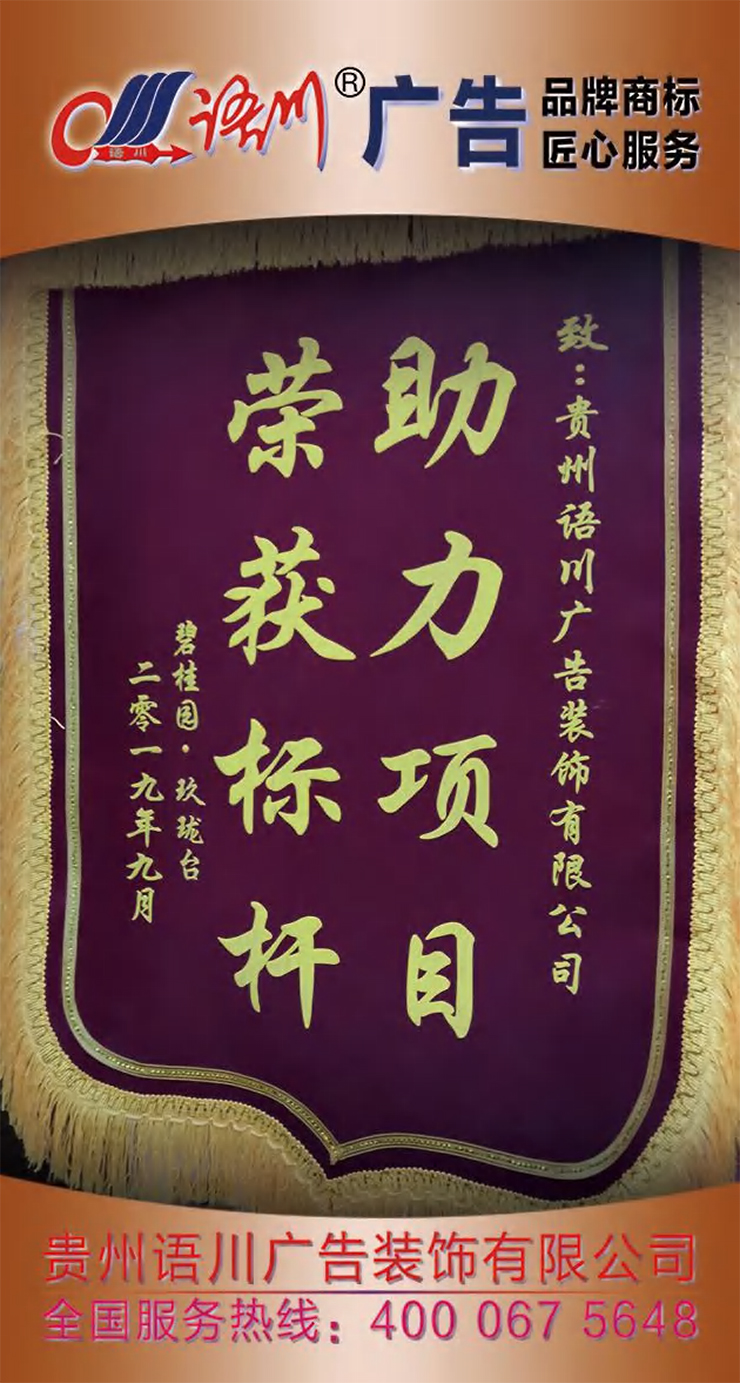 语川
语川®广告
品牌商标
匠心服务
致：贵州语川广告装饰有限公司
助力项目
荣获标杆
碧桂园·玖珑台
二零一九年九月
贵州语川广告装饰有限公司
全国服务热线：400 067 5648